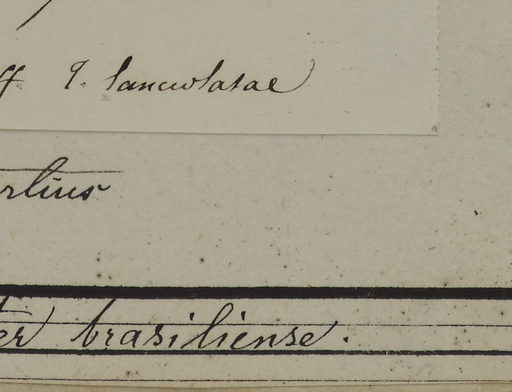 ff q. lanceolatae
rtius
er brasiliense.